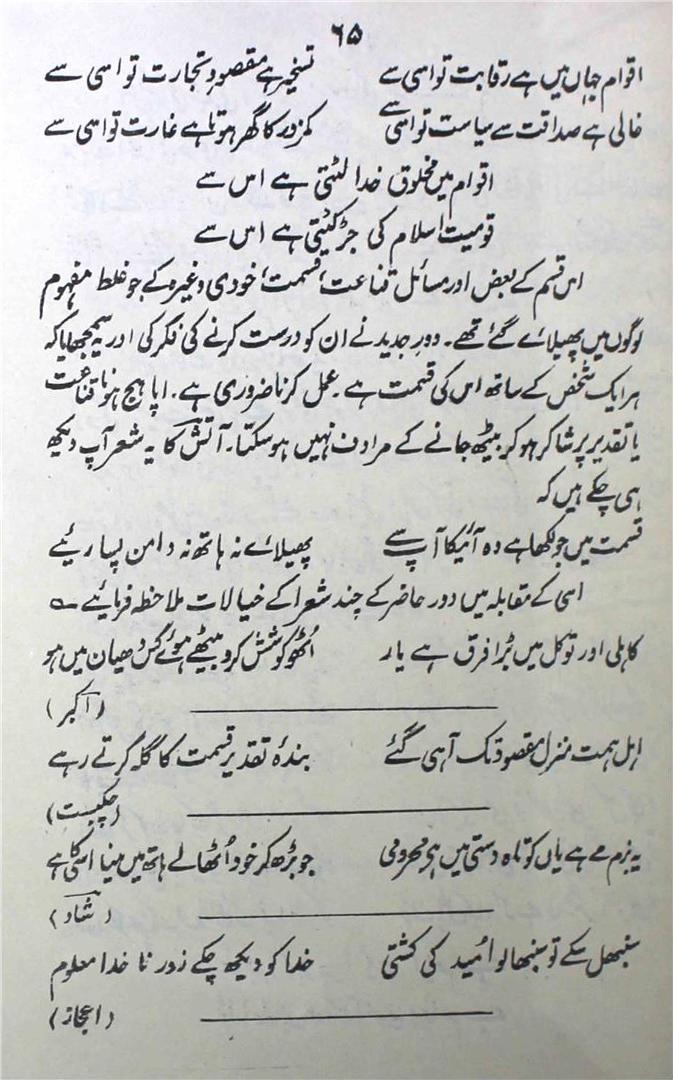 ۶۵
اقوام جہاں میں ہے رقابت تو اسی سے تسخیر ہے مقصودِ تجارت تو اسی سے
خالی ہے صداقت سے سیاست تو اسی سے کمزور کا گھر ہوتا ہے غارت تو اسی سے
اقوام میں مخلوق خدا بٹتی ہے اس سے
قومیت اسلام کی جڑ کٹتی ہے اس سے
اس قسم کے بعض اور مسائل قناعت، قسمت، خودی وغیرہ کے جو غلط مفہوم
لوگوں میں پھیلائے گئے تھے۔ دورِ جدید نے ان کو درست کرنے کی فکر کی اور یہ سمجھایا کہ
ہر ایک شخص کے ساتھ اس کی قسمت ہے۔ عمل کرنا ضروری ہے۔ اپاہج ہونا قناعت
یا تقدیر پر شاکر ہو کر بیٹھ جانے کے مرادف نہیں ہو سکتا۔ آتش کا یہ شعر آپ دیکھ
ہی چکے ہیں کہ
قسمت میں جو لکھا ہے وہ آئیگا آپ سے پھیلائے نہ ہاتھ نہ دامن پساریئے
اسی کے مقابلہ میں دور حاضر کے چند شعرا کے خیالات ملاحظہ فرمائیے ؎
کاہلی اور توکل میں بڑا فرق ہے یار اُٹھو کوشش کرو بیٹھے ہوئے کس دھیان میں ہو
(اکبر)
اہل ہمت منزل مقصود تک آہی گئے بندۂ تقدیر قسمت کا گلہ کرتے رہے
(چکبست)
یہ بزم مے ہے یاں کوتاہ دستی میں ہے محرومی جو بڑھ کر خود اُٹھالے ہاتھ میں مینا اسی کا ہے
(شاد)
سنبھل سکے تو سنبھالو اُمید کی کشتی خدا کو دیکھ چکے زور نا خدا معلوم
(اعجاز)